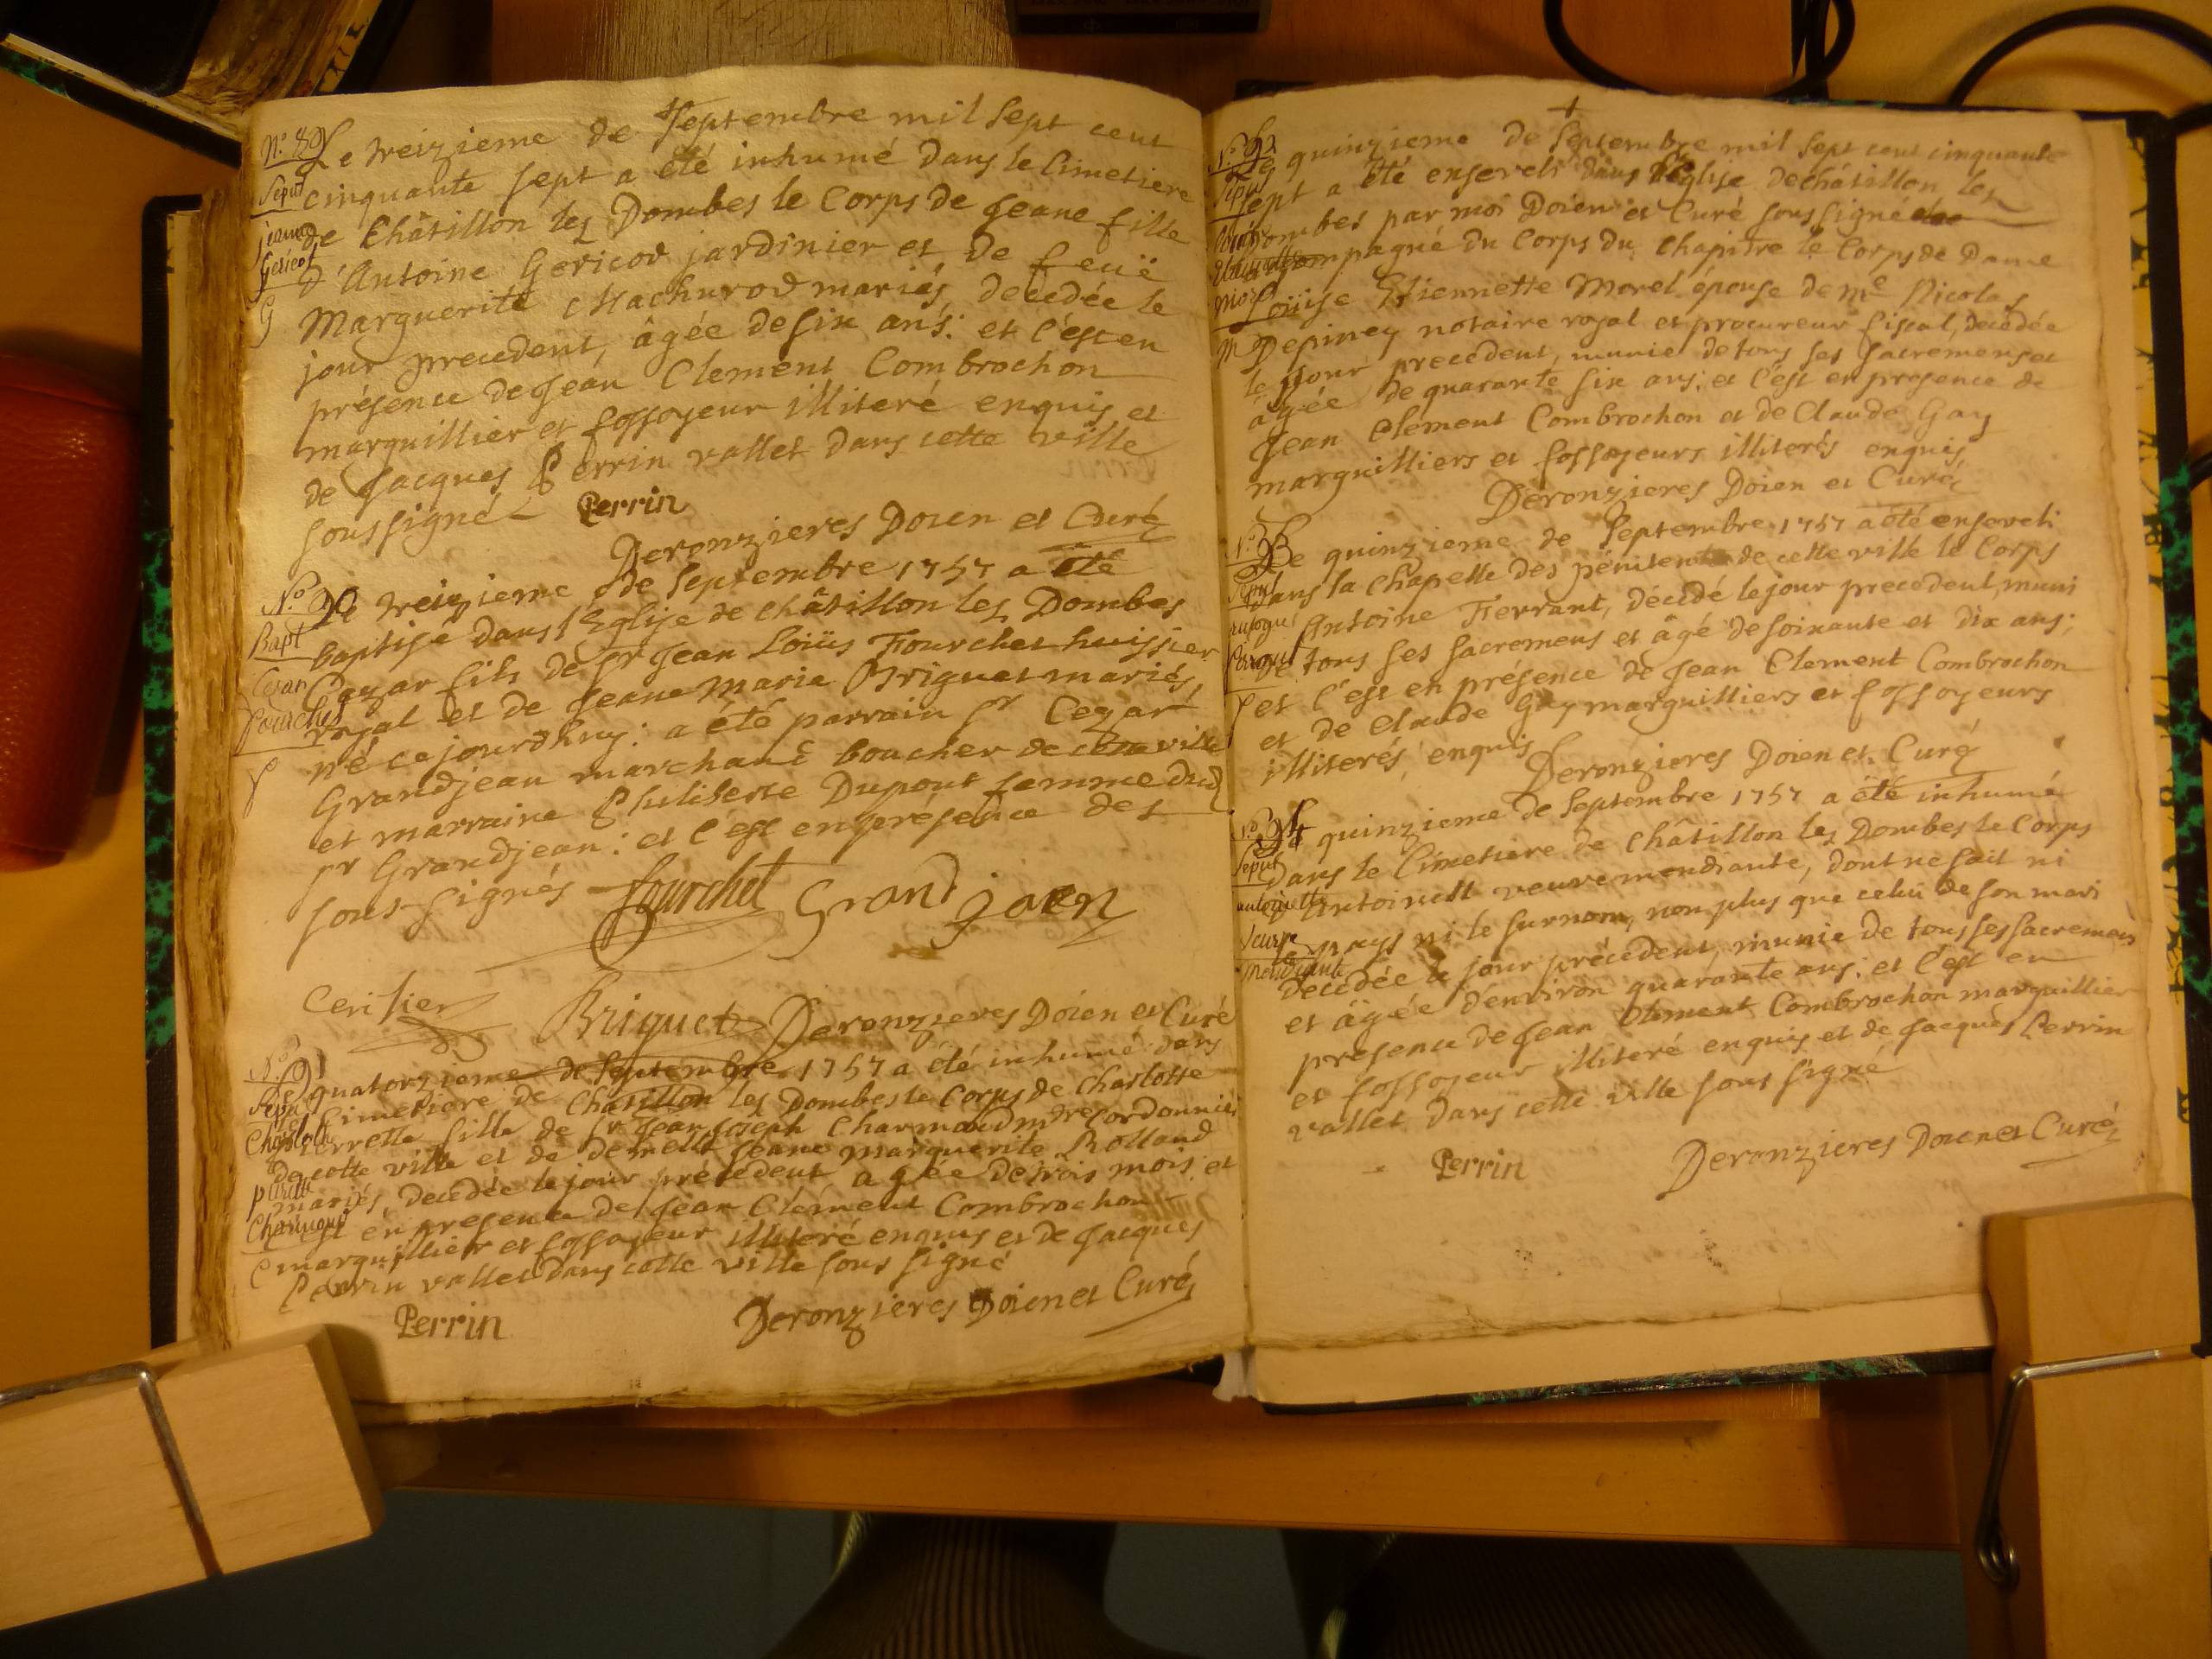 N.º 89
Sepul
jeanne
Gericot
G
Le treizieme de Septembre mil Sept cent
cinquante sept a été inhumé dans le Cimetiere
de Châtillon les Dombes le Corps de Jeane fille
d'Antoine Gericod jardinier et de feuë
Marguerite Machurod mariés, decedée le
jour precedent, âgée de six ans: et c'est en
présence de Jean Clement Combrochon
marguillier et fossoyeur illiteré enquis et
de Jacques Perrin vallet dans cette ville
sous signé
Perrin
Deronzieres Doien et Curé
N.º 90
Bapt
Cezar
fourchet
f
Le treizieme de Septembre 1757 a été
baptisé dans l'Eglise de châtillon les Dombes
Cezar fils de Sr Jean Loüis Fourchet huissier
royal et de Jeane Marie Briguet mariés,
né ce jourdhuy: a été parrain Sr Cezar
Grandjean marchand boucher de cette ville
et marraine Philiberte Dupont femme dud
sr Grandjean: et c'est en présence des
sous-signés
fourchet Grand jaen
Cerisier
Briguet Deronzieres Doien et Curé
N.º 91
Sepul
Charlotte
pierrette
Charmond
C
Le quatorzieme de Septembre 1757 a été inhumé dans
le Cimetiere de Châtillon les Dombes le Corps de Charlotte
Pierrette fille de Sr Jean Joseph Charmond mtre Cordonnier
de cette ville et de demelle Jeane Marguerite Rolland
mariés, decedée le jour précédent, agée de trois mois: et
c'est en presence de Jean Clément Combrochon
marguillier et fossoyeur illiteré enquis et de Jacques
Perrin vallet dans cette ville sous signé
Perrin
Deronzieres Doien et Curé
N.º 92
Sepul
Louise
Morel
M
Le quinzieme de Septembre mil Sept cent cinquante
sept a été enseveli dans l'Eglise de châtillon les
Dombes par moi Doien et Curé sous signé
accompagné du Corps du Chapitre le Corps de Dame
Loüise Etiennette Morel épouse de Me Nicolas
Depiney notaire royal et procureur fiscal, decedée
le jour precedent, munie de tous ses Sacrémens et
âgée de quarante six ans; et c'est en presence de
Jean Clément Combrochon et de Claude Gay
marguilliers et fossoyeurs illiterés enquis
Deronzieres Doien et Curé
N.º 93
Sepul
Le quinzieme de Septembre 1757 a été enseveli
dans la Chapelle des pénitents de cette ville le Corps
d'Antoine Ferrant, décédé le jour precedent, muni
de tous ses sacremens et âgé de soixante et dix ans;
et c'est en présence de Jean Clement Combrochon
et de Claude Gay marguilliers et fossoyeurs
illiterés, enquis
Deronzieres Doien et Curé
N.º 94
Sepul
antoinette
veuve
mendiante
Le quinzieme de Septembre 1757 a été inhumé
dans le Cimetiere de Châtillon les Dombes le Corps
d'Antoinette veuve mendiante, dont ne sait ni
le pays ni le surnom, non plus que celui de son mari
decédée le jour précédent, munie de tous ses sacremens
et âgée d'environ quarante ans: et c'est en
presence de Jean Clément Combrochon marguillier
et fossoyeur illiteré enquis et de Jacques Perrin
vallet dans cette ville sous signé
Perrin
Deronzieres Doien et Curé